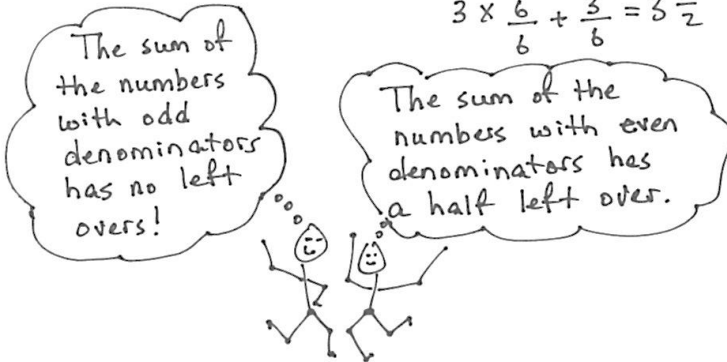 3 × 6/6 + 3/6 = 3 1/2
The sum of
the numbers
with odd
denominators
has no left
overs!
The sum of the
numbers with even
denominators has
a half left over.